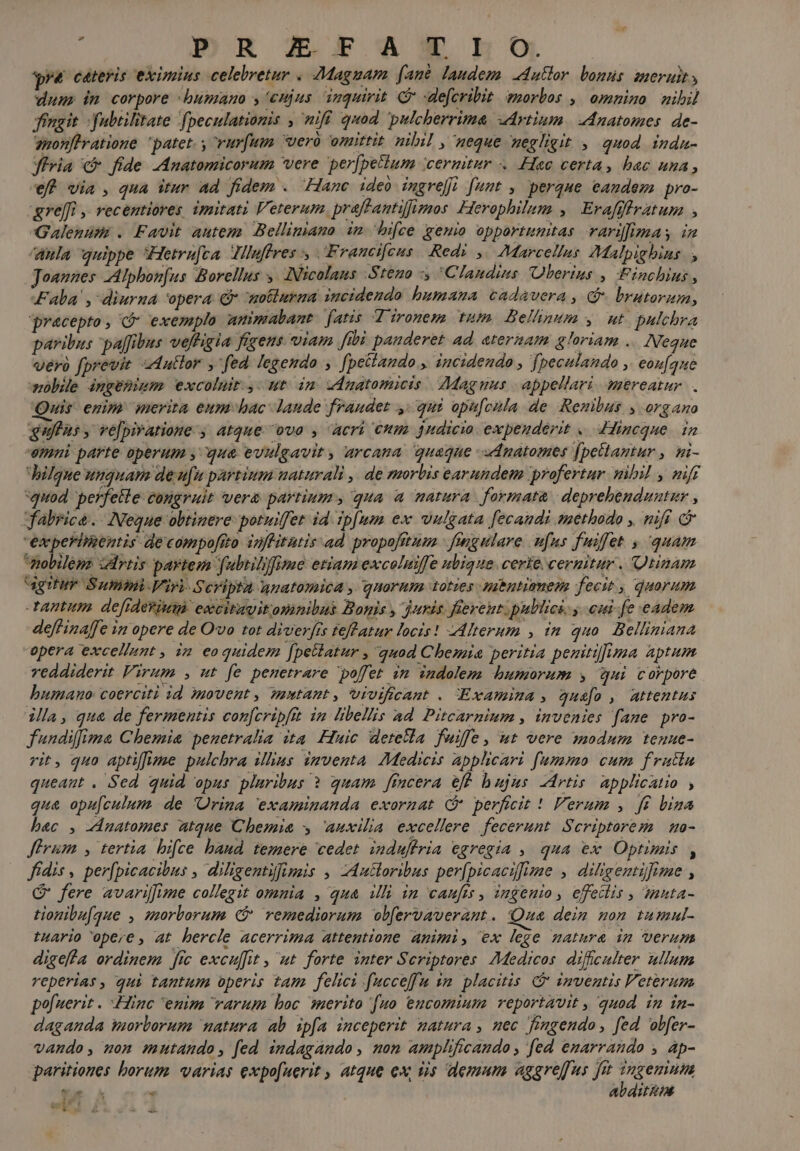 PRÆFATIO.
præ cæteris eximius celebretur. Magnam sanè laudem Auctor bonus meruit,
dum in corpore humano, cujus inquirit & describit morbos, omnino nihil
fingit subtilitate speculationis, nisi quod pulcherrima Artium Anatomes de-
monstratione patet; rursum verò omittit nihil, neque negligit, quod indu-
stria & fide Anatomicorum vere perspectum cernitur. Hac certa, hac una,
est via, qua itur ad fidem. Hanc ideò ingressi sunt, perque eandem pro-
gressi, recentiores imitati Veterum præstantissimos Herophilum, Erasistratum,
Galenum. Favit autem Belliniano in hisce genio opportunitas rarissima, in
aula quippe Hetrusca Illustres, Franciscus Redi, Marcellus Malpighius,
Joannes Alphonsus Borellus, Nicolaus Steno, Claudius Uberius, Finchius,
Faba, diurna opera & nocturna incidendo humana cadavera, & brutorum,
præcepto, & exemplo animabant satis Tironem tum Bellinum, ut pulchra
paribus passibus vestigia figens viam sibi panderet ad æternam gloriam. Neque
verò sprevit Auctor, sed legendo, spectando, incidendo, speculando, eousque
nobile ingenium excoluit, ut in Anatomicis Magnus appellari mereatur.
Quis enim merita eum hac laude fraudet, qui opuscula de Renibus, organo
gustus, respiratione, atque ovo, acri cum judicio expenderit. Hincque in
omni parte operum, quæ evulgavit, arcana quæque Anatomes spectantur, ni-
hilque unquam de usu partium naturali, de morbis earundem profertur nihil, nisi
quod perfecte congruit veræ partium, qua a natura formatæ deprehenduntur,
fabricæ. Neque obtinere potuisset id ipsum ex vulgata secandi methodo, nisi &
experimentis de composito institutis ad propositum singulare usus fuisset, quam
nobilem Artis partem subtilissime etiam excoluisse ubique certe cernitur. Utinam
igitur Summi Viri Scripta anatomica, quorum toties mentionem fecit, quorum
tantum desiderium excitavit omnibus Bonis, juris fierent publici, cui se eadem
destinasse in opere de Ovo tot diversis testatur locis! Alterum, in quo Belliniana
opera excellunt, in eo quidem spectatur, quod Chemiæ peritia penitissima aptum
reddiderit Virum, ut se penetrare posset in indolem humorum, qui corpore
humano coerciti id movent, mutant, vivificant. Examina, quæso, attentus
illa, quæ de fermentis conscripsit in libellis ad Pitcarnium, invenies sane pro-
fundissima Chemiæ penetralia ita Huic detecta fuisse, ut vere modum tenue-
rit, quo aptissime pulchra illius inventa Medicis applicari summo cum fructu
queant. Sed quid opus pluribus? quam sincera est hujus Artis applicatio,
qua opusculum de Urina examinanda exornat & perficit! Verum, si bina
hæc, Anatomes atque Chemiæ, auxilia excellere fecerunt Scriptorem no-
strum, tertia hisce haud temere cedet industria egregia, qua ex Optimis,
fidis, perspicacibus, diligentissimis, Auctoribus perspicacissime, diligentissime,
& fere avarissime collegit omnia, quæ illi in causis, ingenio, effectis, muta-
tionibusque, morborum & remediorum observaverant. Quæ dein non tumul-
tuario opere, at hercle acerrima attentione animi, ex lege naturæ in verum
digesta ordinem sic excussit, ut forte inter Scriptores Medicos difficulter ullum
reperias, qui tantum operis tam felici successu in placitis & inventis Veterum
posuerit. Hinc enim rarum hoc merito suo encomium reportavit, quod in in-
daganda morborum natura ab ipsa inceperit natura, nec fingendo, sed obser-
vando, non mutando, sed indagando, non amplificando, sed enarrando, ap-
paritiones horum varias exposuerit, atque ex iis demum aggressus sit ingenium
abditum